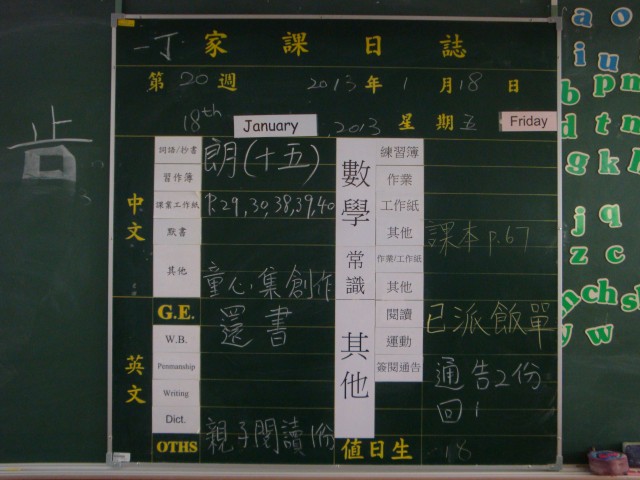 一丁 家課日誌
第20週 2013年1月18日
18th January, 2013 星期五 Friday
中文
詞語/抄書 朗(十五)
習作簿
課業工作紙 P.29,30,38,39,40
默書
其他 童心集創作
英文
G.E. 還書
W.B.
Penmanship
Writing
Dict.
OTHS 親子閱讀1份
數學
練習簿
作業
工作紙
其他 課本p.67
常識
作業/工作紙
其他
其他
閱讀 已派飯單
運動
簽閱通告 通告2份
回1
值日生 18
a o
i u
b p m
d t n
g k h
j q
z c
ch sh
y w